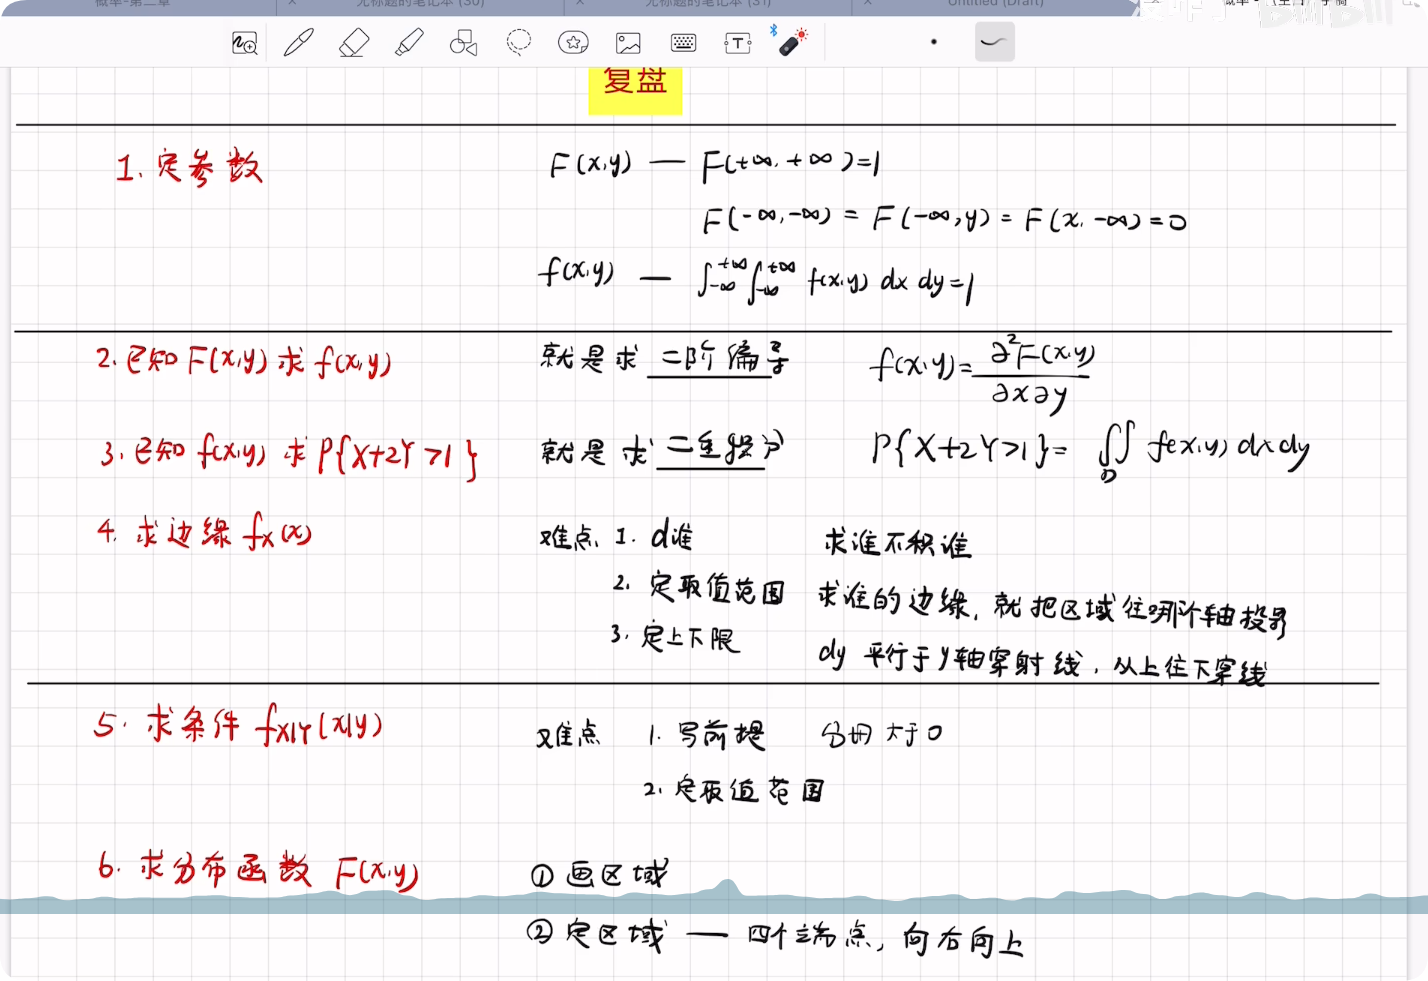 概率-第二章 × 无标题的笔记本 (30) × 无标题的笔记本 (31) × Untitled (Draft)
复盘
1. 定参数 F(x,y) — F(+∞, +∞)=1
F(-∞,-∞) = F(-∞,y) = F(x,-∞) = 0
f(x,y) — ∫_{-∞}^{+∞}∫_{-∞}^{+∞} f(x,y) dx dy=1
2. 已知F(x,y) 求 f(x,y) 就是求 二阶偏导 f(x,y)=∂²F(x,y)/∂x∂y
3. 已知 f(x,y) 求 P{X+2Y>1} 就是求 二重积分 P{X+2Y>1}= ∬_D f(x,y) dxdy
4. 求边缘 f_X(x) 难点 1. d谁 求谁不积谁
2. 定取值范围 求谁的边缘, 就把区域往哪个轴投影
3. 定上下限 dy 平行于y轴穿射线, 从上往下穿线
5. 求条件 f_{X|Y}(x|y) 难点 1. 写前提 分母大于0
2. 定取值范围
6. 求分布函数 F(x,y) ① 画区域
② 定区域 — 四个端点, 向右向上